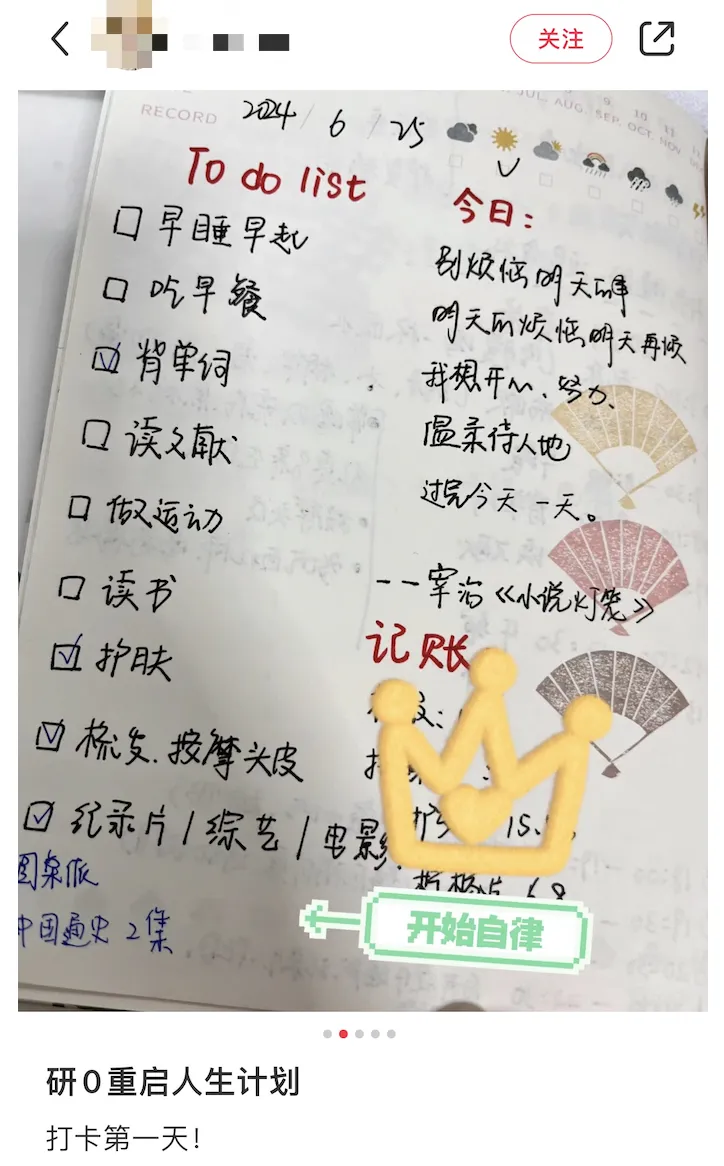 关注
RECORD
2024 / 6 / 25
JUL. AUG. SEP. OCT. NOV.
9 10 11
To do list
□ 早睡早起
□ 吃早餐
☑ 背单词
□ 读文献
□ 做运动
□ 读书
☑ 护肤
☑ 梳发、按摩头皮
☑ 纪录片 / 综艺 / 电影
中国通史 2集
今日:
别烦恼明天的事
明天的烦恼明天再烦
我想开心、努力、
温柔待人地
过完今天一天。
——宰治《小说灯笼》
记账
15.
6.8
开始自律
研0重启人生计划
打卡第一天!